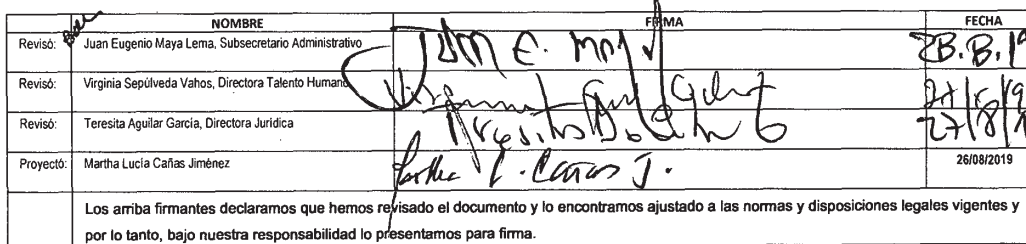 NOMBRE FIRMA FECHA
Revisó: Juan Eugenio Maya Lema, Subsecretario Administrativo Juan E. 28.8.19
Revisó: Virginia Sepúlveda Vahos, Directora Talento Humano Virginia
Revisó: Teresita Aguilar García, Directora Jurídica Teresita 27/8/19
Proyectó: Martha Lucía Cañas Jiménez Martha L. Cañas J. 26/08/2019
Los arriba firmantes declaramos que hemos revisado el documento y lo encontramos ajustado a las normas y disposiciones legales vigentes y
por lo tanto, bajo nuestra responsabilidad lo presentamos para firma.